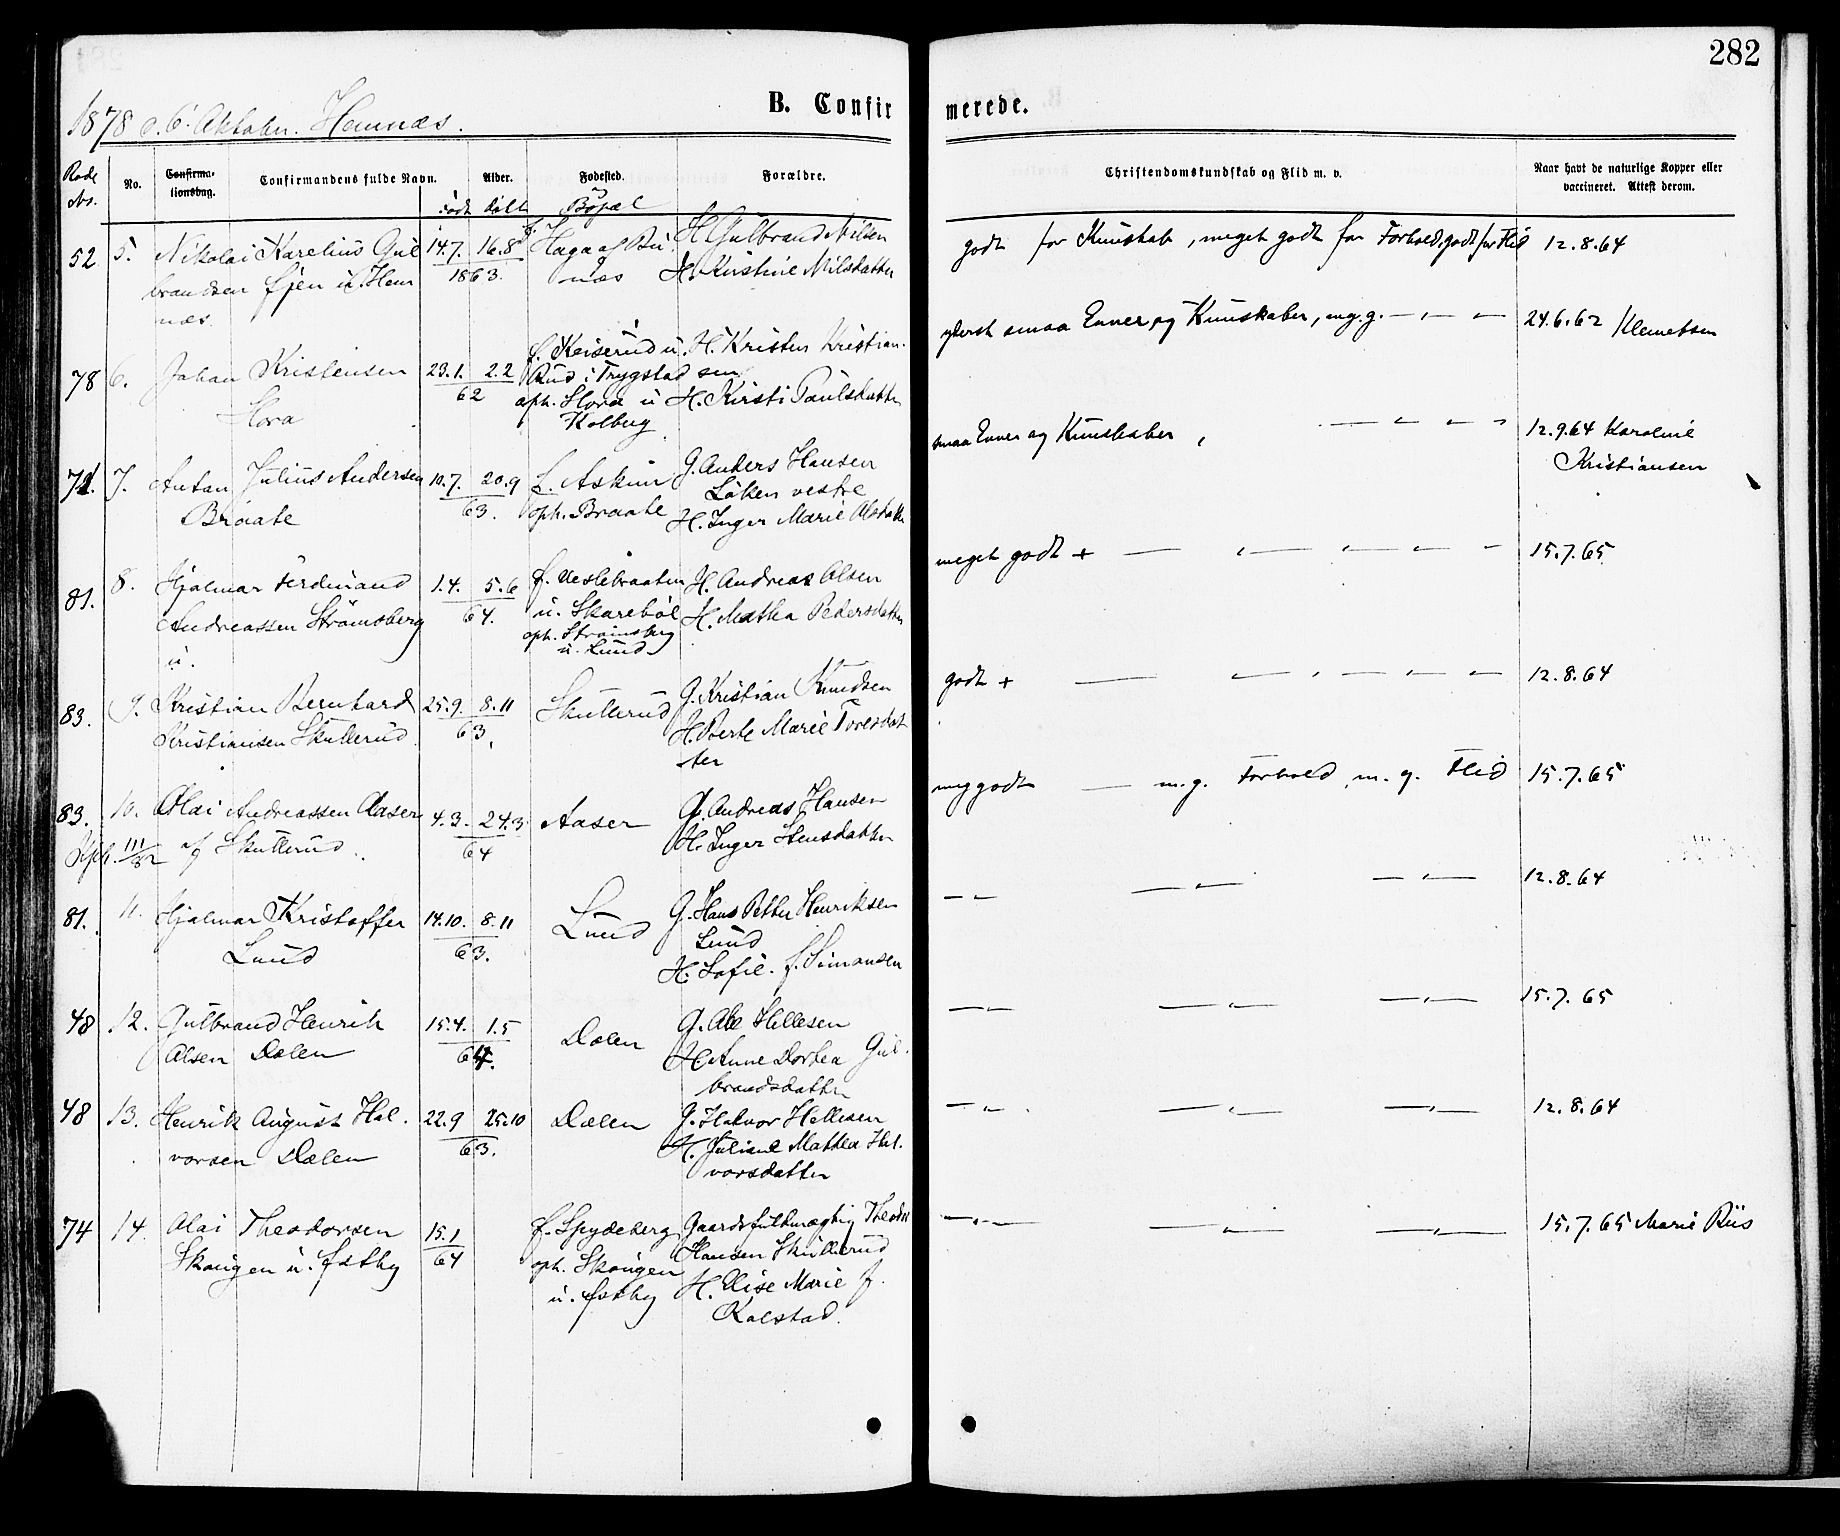 282
1878 d. 6 Oktober. Hemnæs.
B. Confirmerede.
Rode No.
No.
Confirmationsdag.
Confirmandens fulde Navn.
Alder.
Fødested.
Forældre.
Christendomskundskab og Flid m. v.
Naar havt de naturlige Kopper eller
vaccineret. Attest derom.
født døbt
Bopæl
52 5. Nikolai Karelius Gul
brandsen u. Hem
næs.
14.7. 16.8
1863.
Haga af Bu
næs
H. Gulbrand Nilsen
H. Kirstine Nilsdatter
godt for Kunskab, meget godt for Forhold, godt for Flid
12.8.64
78 6. Johan Kristensen
Hora
23.1. 2.2
62
f. Keiserud u.
Rud i Trygstad
oph. Hora u
Kolberg
H. Kristen Kristian-
sen
H. Kirsti Paulsdatter
yderst smaa Evner og Kunskaber, mg. g. — „ — —
24.6.62 Klemetsen
71. 7. Anton Julius Andersen
Braate
10.7. 20.9
63.
f. Askim
oph. Braate
G. Anders Hansen
Løken vestre
H. Inger Marie Olsdatter
smaa Evner og Kunskaber,
12.9.64 Karoline
Kristiansen
81. 8. Hjalmar Ferdinand
Andreassen Strømsberg
u.
1.4. 5.6
64.
f. Veslebraaten
u. Skarebøl
oph. Strømsberg
u. Lund
H. Andreas Olsen
H. Mathea Pedersdatter
meget godt + — „ — „ — „ — „ —
15.7.65
83. 9. Kristian Bernhard
Kristiansen Skullerud
25.9. 8.11
63.
Skullerud
G. Kristian Knudsen
H. Berte Marie Toresdat
ter
godt + — „ — „ — „ — „ —
12.8.64
83. 10. Olai Andreassen Aaser
af Skullerud.
4.3. 24.3
64
Aaser
G. Andreas Hansen
H. Inger Hensdatter
meg godt — m. g. Forhold, m. g. Flid
15.7.65
81. 11. Hjalmar Kristoffer
Lund
14.10. 8.11
63.
Lund
G. Hans Petter Henriksen
Lund
H. Sofie f. Simonsen
— „ — — „ — — „ —
12.8.64
48 12. Gulbrand Henrik
Olsen Dælen
15.4. 1.5
64.
Dælen
G. Ole Hellesen
H. Anne Dortea Gul-
brandsdatter
— „ — — „ — — „ —
15.7.65
48 13. Henrik August Hal-
vorsen Dælen
22.9 25.10
63.
Dælen
G. Halvor Hellesen
H. Juliane Mathea Hal-
vorsdatter
— „ — — „ — — „ —
12.8.64
74 14. Olai Theodorsen
Skougen u. Østby
15.1
64
f. Spydeberg
oph. Skougen
u. Østby
Gaardsfuldmægtig Theodor
Hansen Skullerud
H. Elise Marie f.
Kolstad.
— „ — — „ — — „ —
15.7.65 Marie Riis